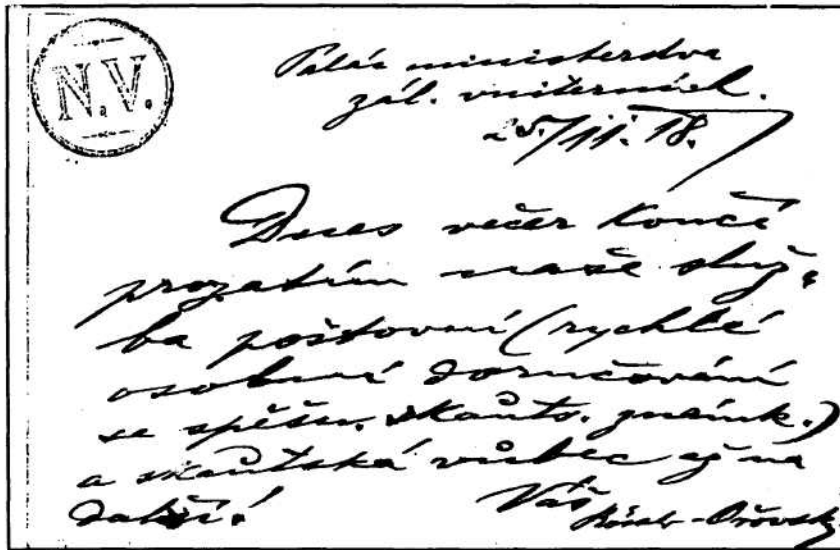 N.V.
Palác ministerstva
zál. vniterních.
25./11. 18.
Dnes večer končí
prozatím naše služ-
ba poštovní (rychlé
osobní doručování
se spěšn. skauts. známk.)
a skautská vůbec až na
další!
Váš
Rössler-Ořovský